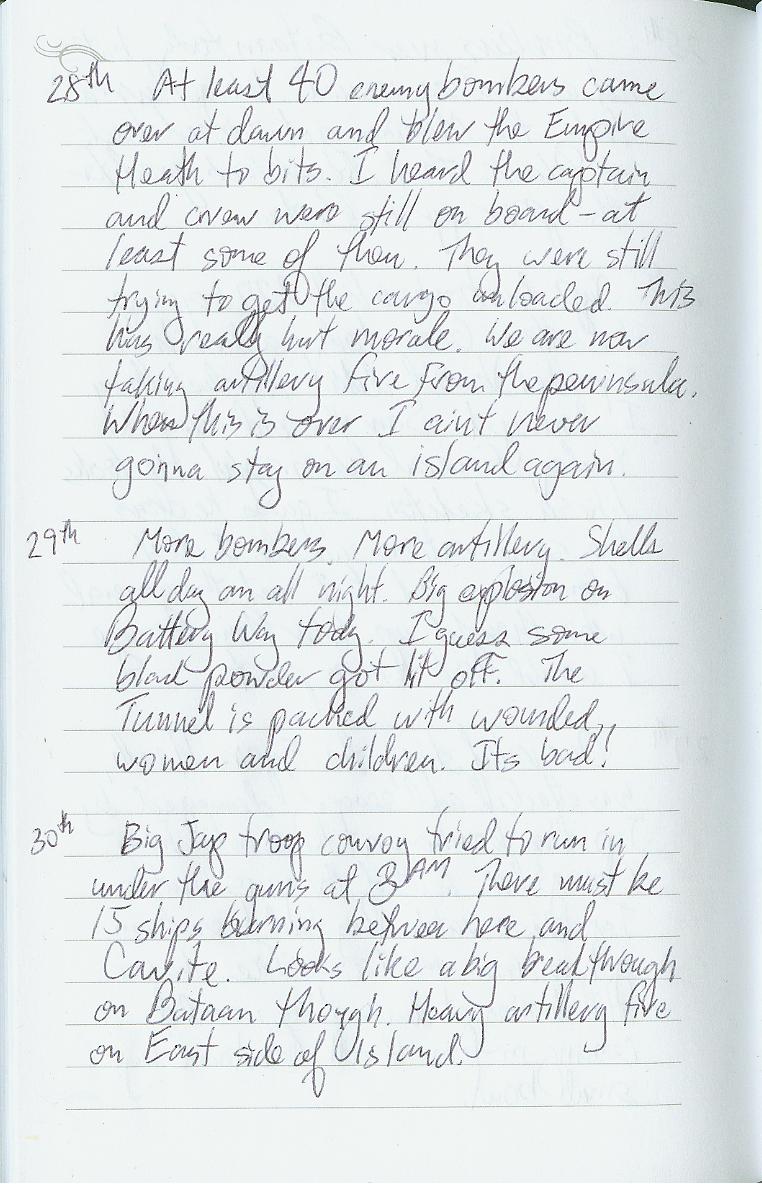 28th At least 40 enemy bombers came
over at dawn and blew the Empire
Heath to bits. I heard the captain
and crew were still on board - at
least some of them. They were still
trying to get the cargo unloaded. This
has really hurt morale. We are now
taking artillery fire from the peninsula.
When this is over I aint never
gonna stay on an island again.
29th More bombers. More artillery. Shells
all day an all night. Big explosion on
Battery Way today. I guess some
black powder got lit off. The
Tunnel is packed with wounded,
women and children. Its bad!
30th Big Jap troop convoy tried to run in
under the guns at 3 AM. There must be
15 ships burning between here and
Cavite. Looks like a big breakthrough
on Bataan though. Heavy artillery fire
on East side of Island.